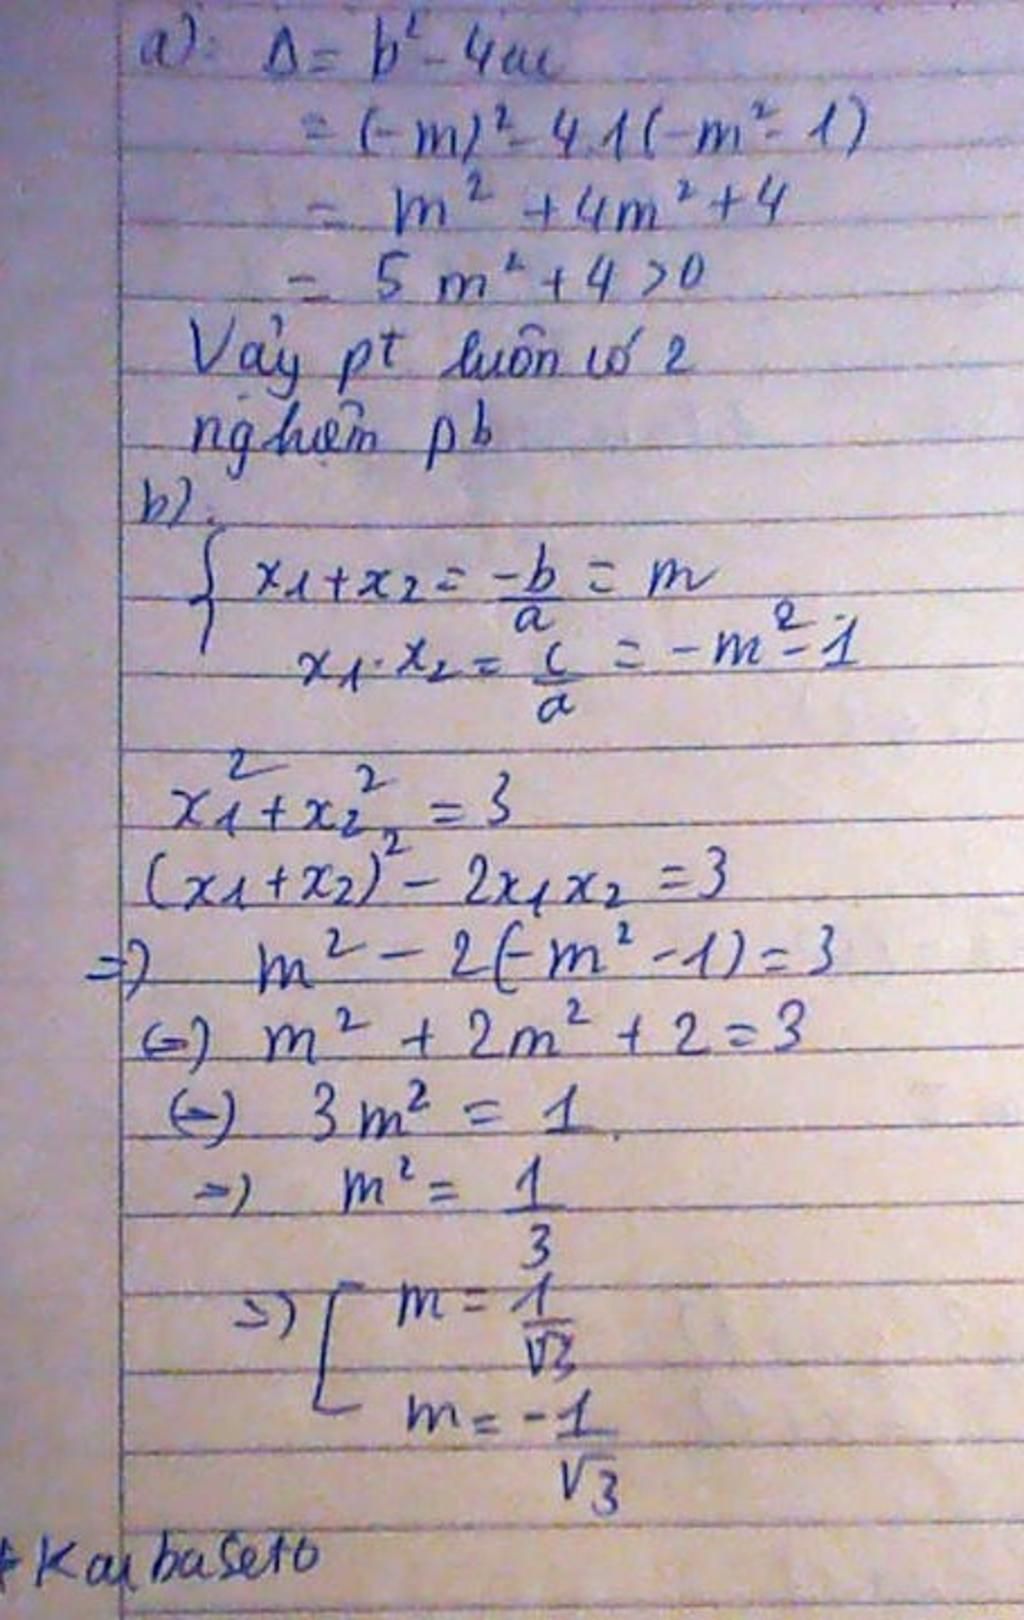 a). Δ = b² - 4ac
= (-m)² - 4.1(-m² - 1)
= m² + 4m² + 4
= 5m² + 4 > 0
Vậy pt luôn có 2
nghiệm pb
b).
{ x₁ + x₂ = -b/a = m
x₁ . x₂ = c/a = -m² - 1
x₁² + x₂² = 3
(x₁ + x₂)² - 2x₁x₂ = 3
=> m² - 2(-m² - 1) = 3
<=> m² + 2m² + 2 = 3
<=> 3m² = 1
=> m² = 1/3
=> [ m = 1/√3
m = -1/√3
* Kaibaseto